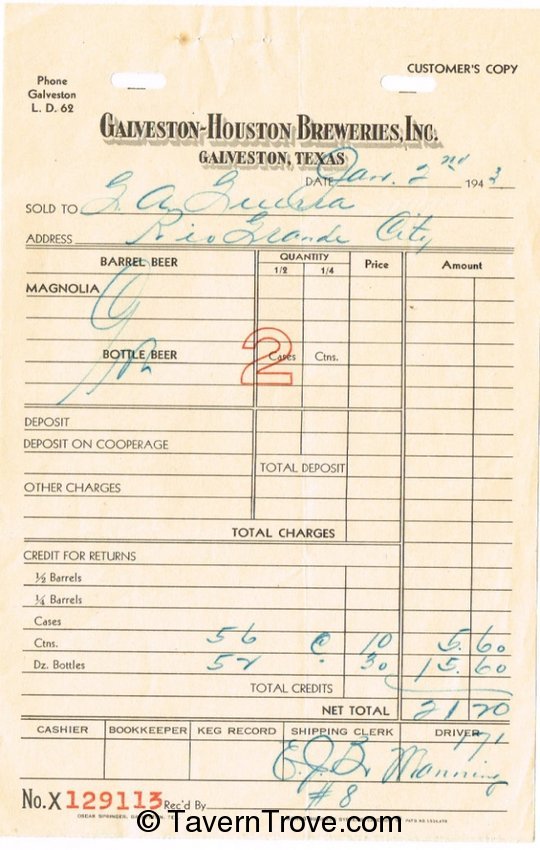 CUSTOMER'S COPY
Phone
Galveston
L. D. 62
GALVESTON-HOUSTON BREWERIES, INC.
GALVESTON, TEXAS
DATE Jan. 2nd 1943
SOLD TO G. A. Guerra
ADDRESS Rio Grande City
BARREL BEER QUANTITY Price Amount
1/2 1/4
MAGNOLIA
BOTTLE BEER 2 Cases Ctns.
DEPOSIT
DEPOSIT ON COOPERAGE
TOTAL DEPOSIT
OTHER CHARGES
TOTAL CHARGES
CREDIT FOR RETURNS
½ Barrels
¼ Barrels
Cases
Ctns. 56 @ 10 5.60
Dz. Bottles 52 " 30 15 60
TOTAL CREDITS
NET TOTAL 21 20
CASHIER BOOKKEEPER KEG RECORD SHIPPING CLERK DRIVER
171
E. J. B. Manning
No. X129113 Rec'd By #8
OSCAR SPRINGER, GALVESTON, TEX.
© TavernTrove.com